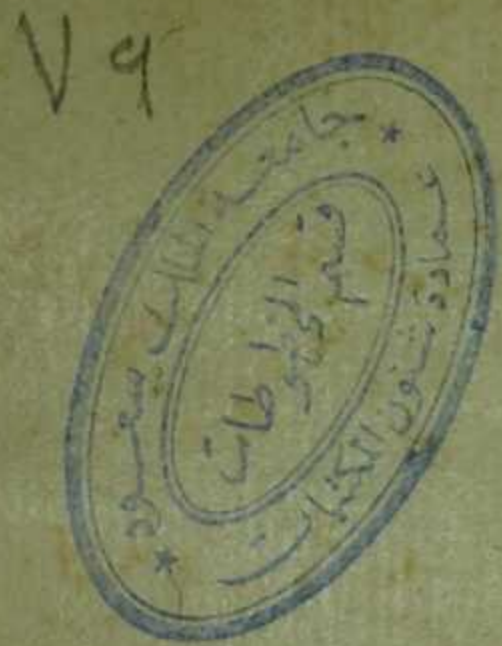 ٧٩
جامعة الملك سعود
عمادة شئون المكتبات
قسم المخطوطات